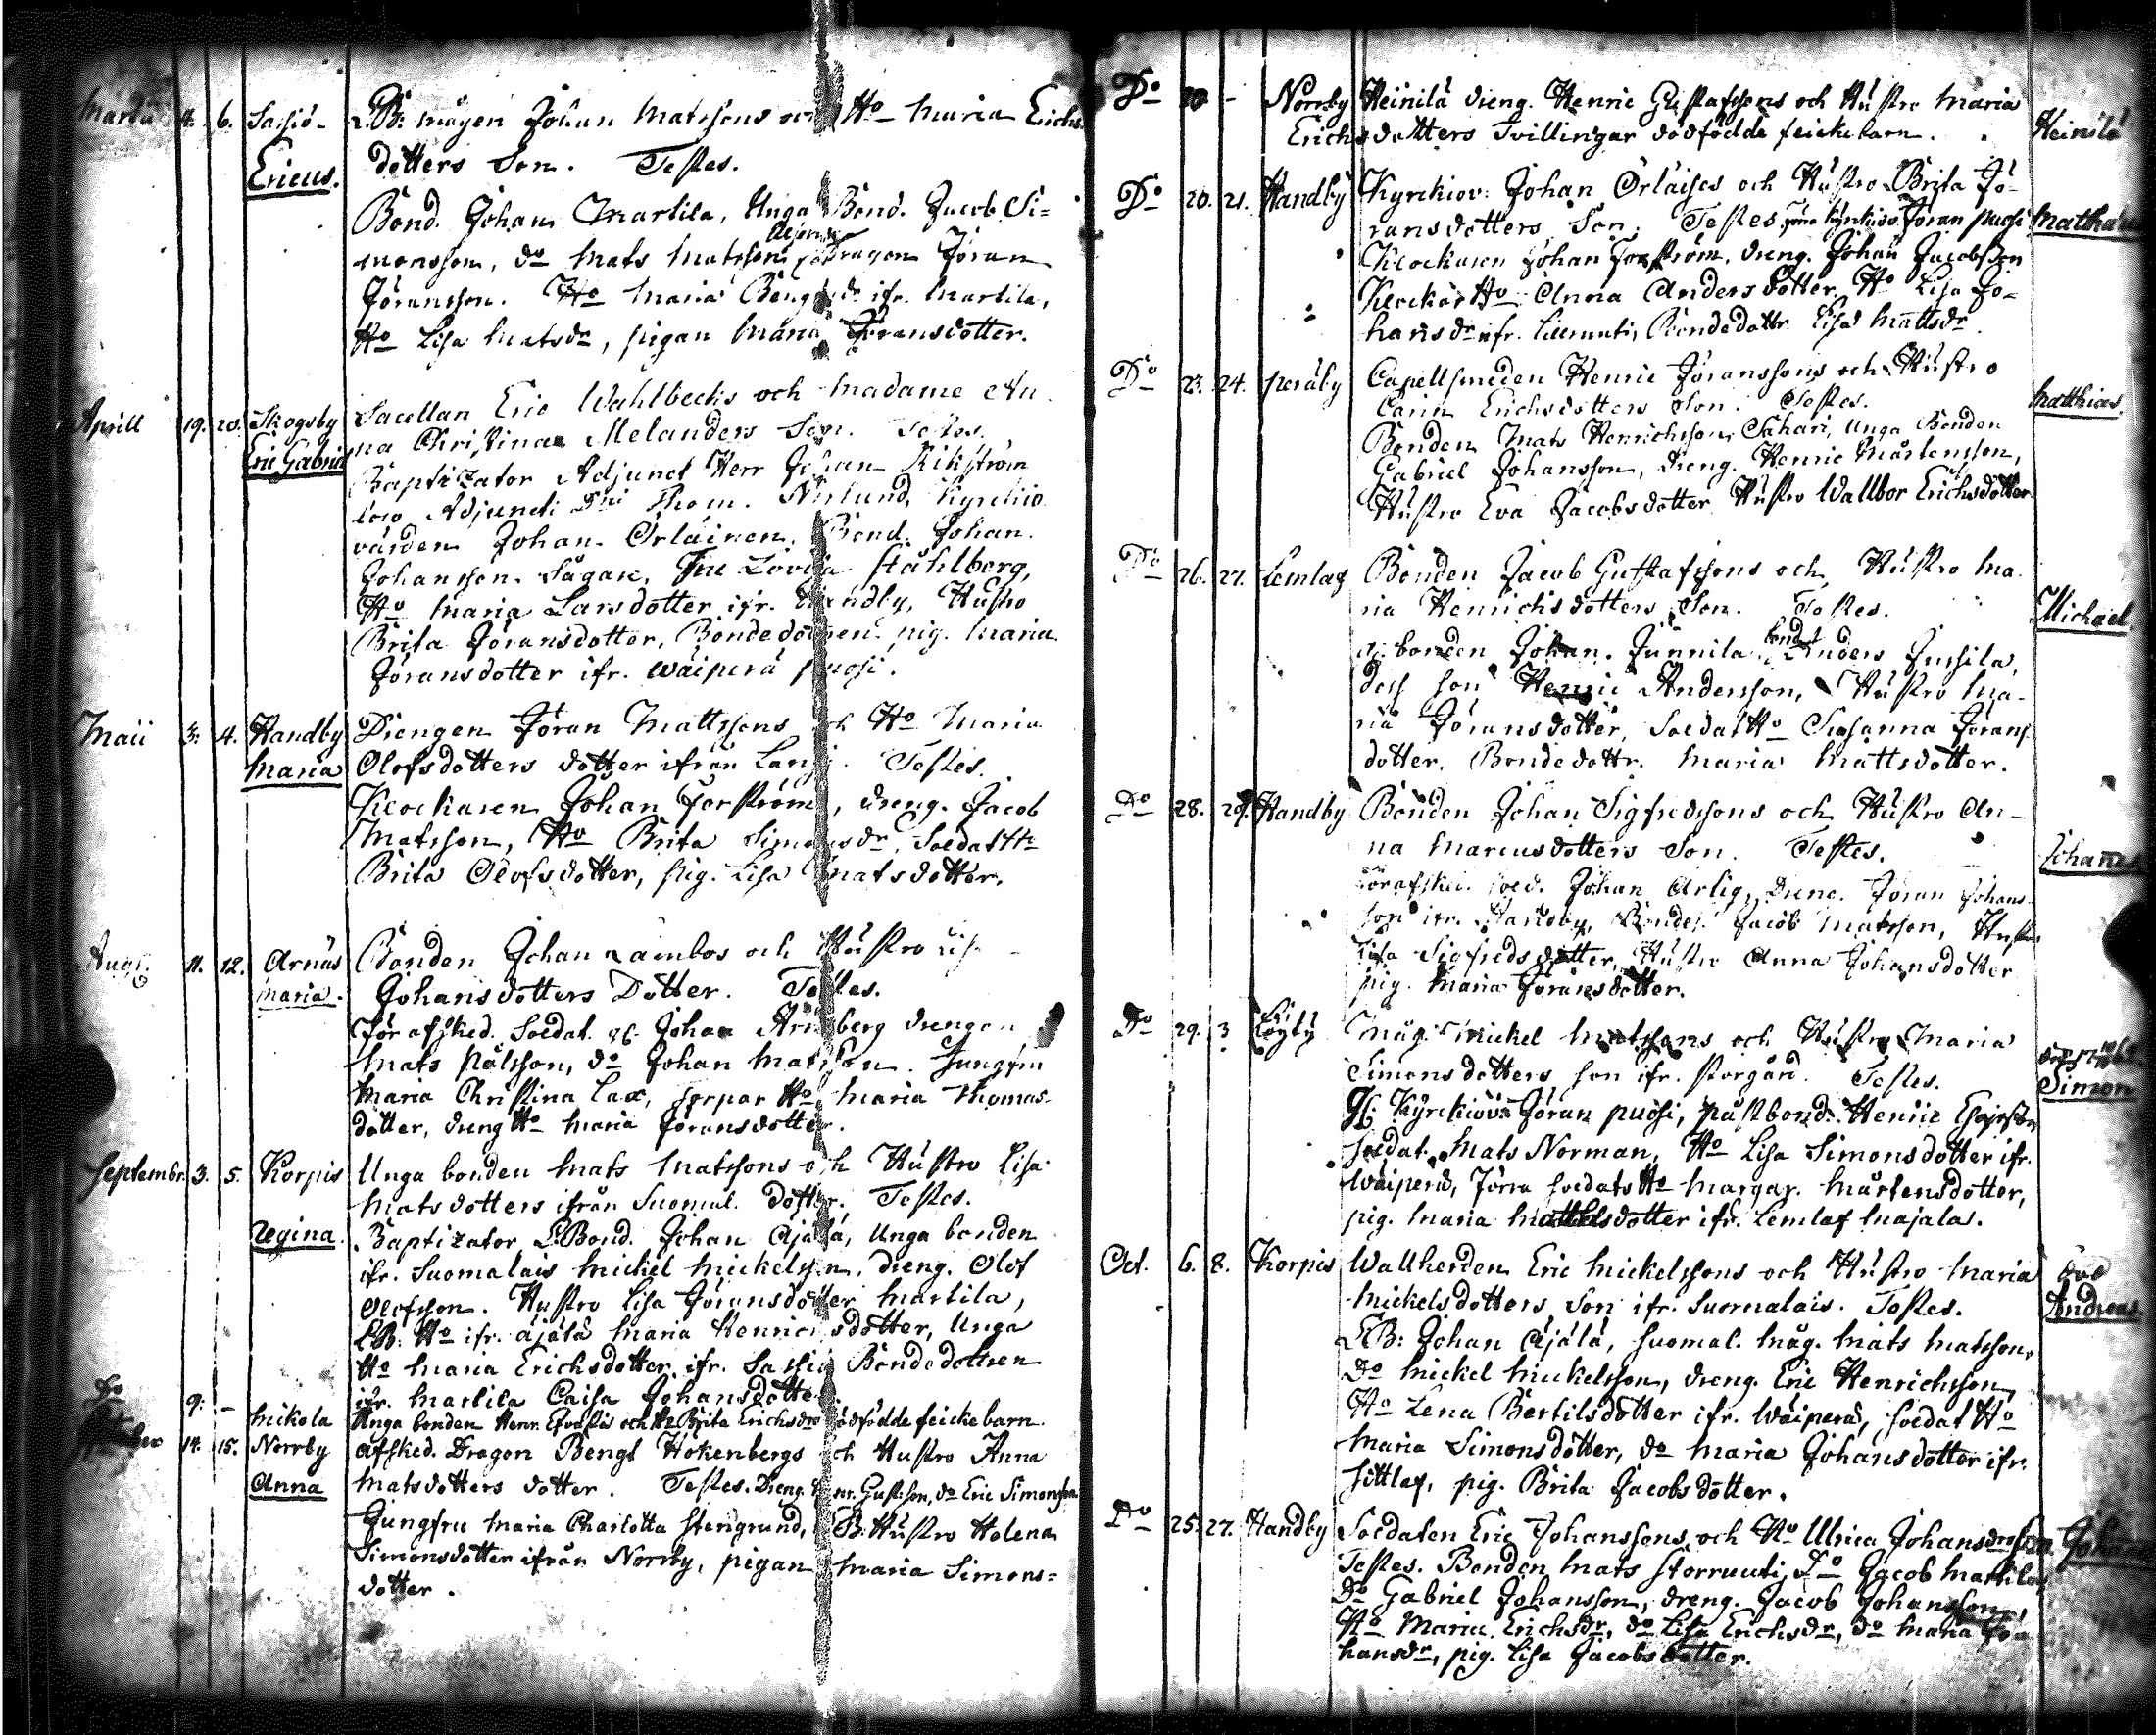 Martii 4. 6. Sassiö- L.B: mågen Johan Matssons och Ho Maria Erichs
Ericus. dotters Son. Testes.
Bond. Johan Martila, Unga Bond. Jacob Si=
monsson, do Mats Matsson, Dragon Jöran
Jöransson. Ho Maria Bengtsdr ifr. Martila,
Ho Lisa Matsdr, pigan Maria Jöransdotter.
Aprill 19. 20. Skogsby Sacellan Eric Wahlbecks och Madame An
Eric Gabriel na Christinae Melanders Son. Testes.
Baptizator Adjunct Herr Johan Rikström
loco Adjuncti Dni Thom. Nylund, Kyrckio
värden Johan Orlainen, Bond. Johan
Johansson Sågare, Fru Lovisa Stählberg,
Ho Maria Larsdotter ifr. Handby, Hustro
Brita Jöransdotter, Bondedottren pig. Maria
Jöransdotter ifr. Wäiperä puosi.
Maii 3. 4. Handby Drengen Jöran Mattssons och Ho Maria
Maria Olofsdotters dotter ifrån Testes.
Klockaren Johan Forström, dreng. Jacob
Matsson, Ho Brita Simonsdr, Soldat Ho
Brita Olofsdotter, pig. Lisa Matsdotter.
Aug. 11. 12. Arnäs Bonden Johan Lambos och Hustro Lisa
Maria. Johansdotters Dotter. Testes.
För afsked. Soldat. Johan Arnberg drengen
Mats Pålsson, do Johan Matsson. Jungfru
Maria Christina Lax, sorpar Ho Maria Thomas-
dotter, dreng Ho Maria Jöransdotter.
Septembr. 3. 5. Korpis Unga bonden Mats Matssons och Hustro Lisa
Matsdotters ifrån Suomal. dotter. Testes.
Regina. Baptizator L.Bond. Johan Äjälä, Unga bonden
ifr. Suomalais Mickel Mickelsson, dreng. Olof
Olofsson. Hustro Lisa Jöransdotter Martila,
LB: Ho ifr. Äjälä Maria Henricsdotter, Unga
Ho Maria Erichsdotter ifr. Sassiö Bondedottren
ifr. Martila Caisa Johansdotter.
Do 9. - Mickola Unga bonden Henr. och Ho Brita Erichsdrs dödfödde feickebarn.
14. 15. Norrby afsked. Dragon Bengt Hokenbergs och Hustro Anna
Anna Matsdotters dotter. Testes. Dreng. Henr. Gustsson, do Eric Simonsson
Jungfru Maria Charlotta Stengrund, B. Hustro Helena
Simonsdotter ifrån Norrby, pigan Maria Simons=
dotter.
Do 20 - Norrby Heinilä dreng. Henric Gustafssons och Hustro Maria
Erichsdotters Tvillingar dödfödde feickebarn. Heinilä
Do 20. 21. Handby Kyrckiov: Johan Orläises och Hustro Brita Jö-
ransdotters Son. Testes förra kyrckiov. Jöran puosi Matthaeus
Klockaren Johan Forström, dreng. Johan Jacobsson
Klockar Ho Anna Andersdotter, Ho Lisa Jo-
hansdr ifr. Liemuti, Bondedottr. Lisa Mattsdr.
Do 23. 24. Peräby Capellsmeden Henric Jöranssons och Hustro
Carin Erichsdotters Son. Testes. Matthias
Bonden Mats Henrichsson Sahari, Unga Bonden
Gabriel Johansson, dreng. Henric Mårtensson,
Hustro Eva Jacobsdotter Hustro Wallbor Erichsdotter
Do 26. 27. Lemlax Bonden Jacob Gustafssons och Hustro Ma
ria Henrichsdotters Son. Testes. Michael.
bonden Johan Junnila, bond Anders Jussila,
dess son Henric Andersson, Hustro Ma-
ria Jöransdotter, Soldat Ho Susanna Jörans
dotter. Bondedottr. Maria Mattsdotter.
Do 28. 29. Handby Bonden Johan Sigfredssons och Hustro An-
na Marcusdotters Son. Testes. Johannes
för afsked. sold. Johan Ärlig, dreng. Jöran Johans-
son ifr. Handby, Bonden Jacob Matsson, Hustro
Lisa Sigfredsdotter, Hustro Anna Johansdotter
pig. Maria Jöransdotter.
Do 29. 3 Löyty Måg. Mickel Matssons och Hustro Maria
Simonsdotters son ifr. Storgård. Testes. Simon
Kyrckiovä Jöran puosi, Nåstbond. Henric
Soldat Mats Norman, Ho Lisa Simonsdotter ifr.
Wäiperä, Förra soldats Ho Margar. Mårtensdotter,
pig. Maria Mattsdotter ifr. Lemlax Majala.
Oct. 6. 8. Korpis Wallherden Eric Mickelssons och Hustro Maria
Mickelsdotters Son ifr. Suomalais. Testes. Andreas
LB: Johan Äjälä, Suomal. Måg. Mats Matsson,
Do Mickel Mickelsson, dreng. Eric Henrichsson,
Ho Lena Bertilsdotter ifr. Wäiperä, Soldat Ho
Maria Simonsdotter, do Maria Johansdotter ifr.
Sittlax, pig. Brita Jacobsdotter.
Do 25. 27. Handby Soldaten Eric Johanssons och Ho Ulrica Johansdrs Son Johannes
Testes. Bonden Mats Storruuti, Do Jacob Martila,
Do Gabriel Johansson, dreng. Jacob Johansson,
Ho Maria Erichsdr, do Lisa Erichsdr, do Maria Jo-
hansdr, pig. Lisa Jacobsdotter.